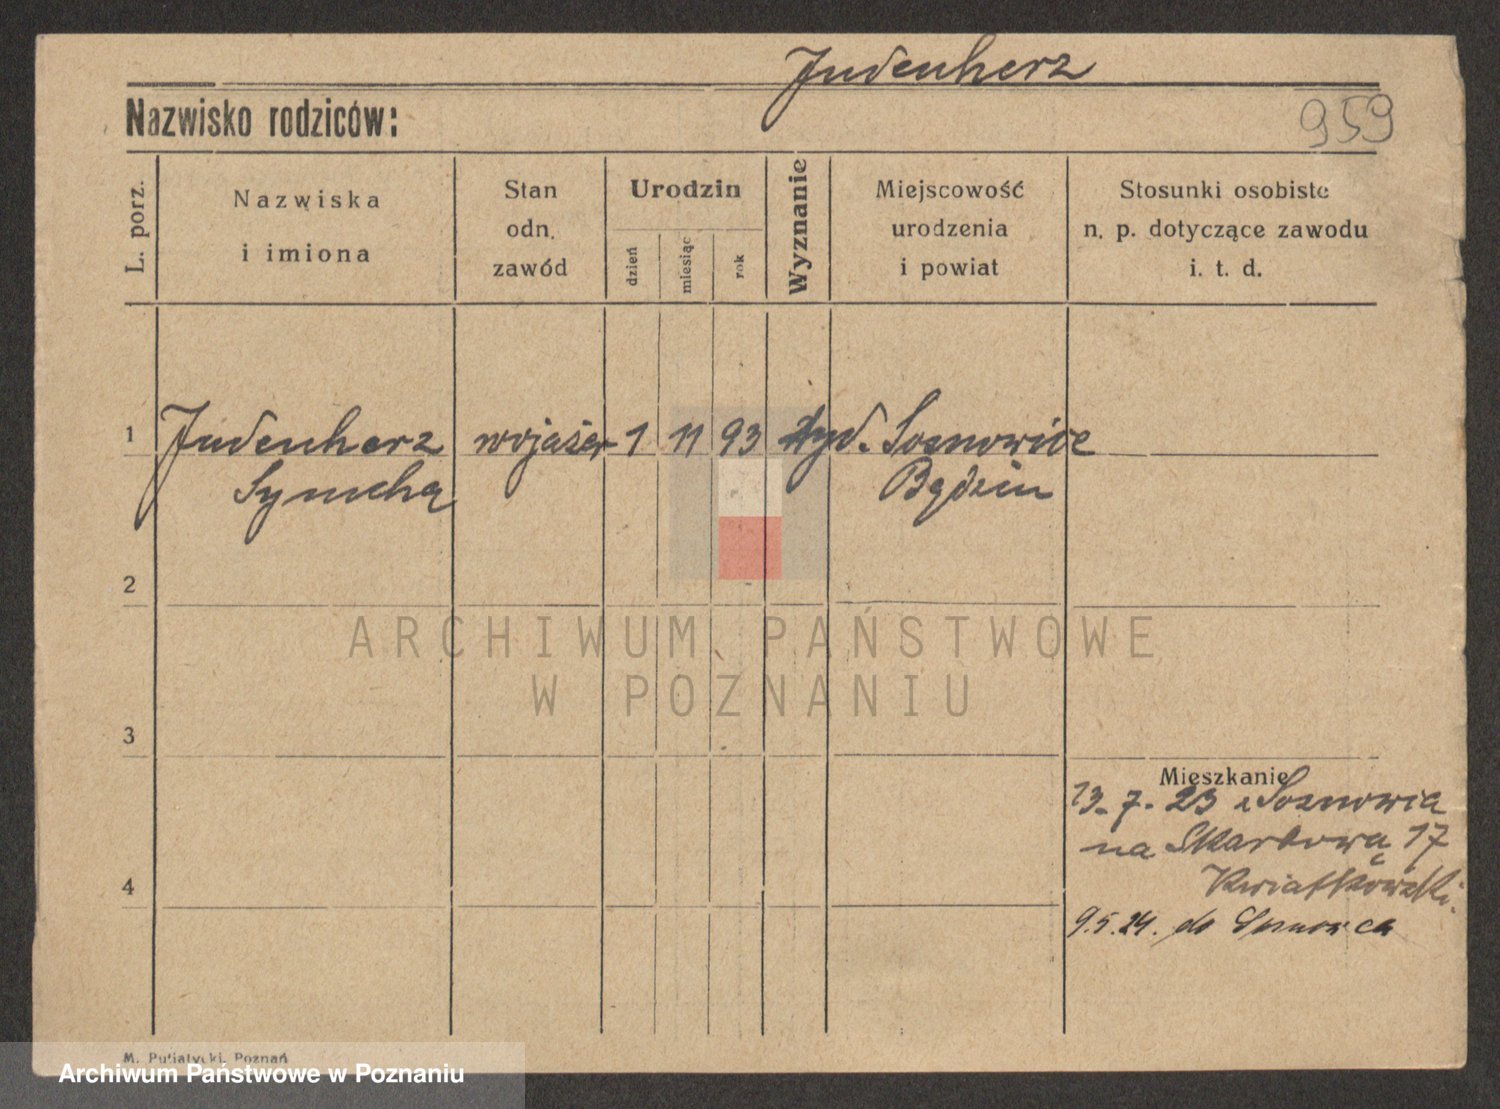 Judenherz
Nazwisko rodziców:
959
L. porz.
Nazwiska
i imiona
Stan
odn.
zawód
Urodzin
dzień
miesiąc
rok
Wyznanie
Miejscowość
urodzenia
i powiat
Stosunki osobiste
n. p. dotyczące zawodu
i. t. d.
1 Judenherz wojażer 1 11 93 żyd. Sosnowice
Symcha Będzin
2
3
4
Mieszkanie
13. 7. 23 z Sosnowca
na Skarbową 17
Kwiatkowski.
9.5.24. do Sosnowca
ARCHIWUM PAŃSTWOWE
W POZNANIU
M. Putiatycki, Poznań
Archiwum Państwowe w Poznaniu